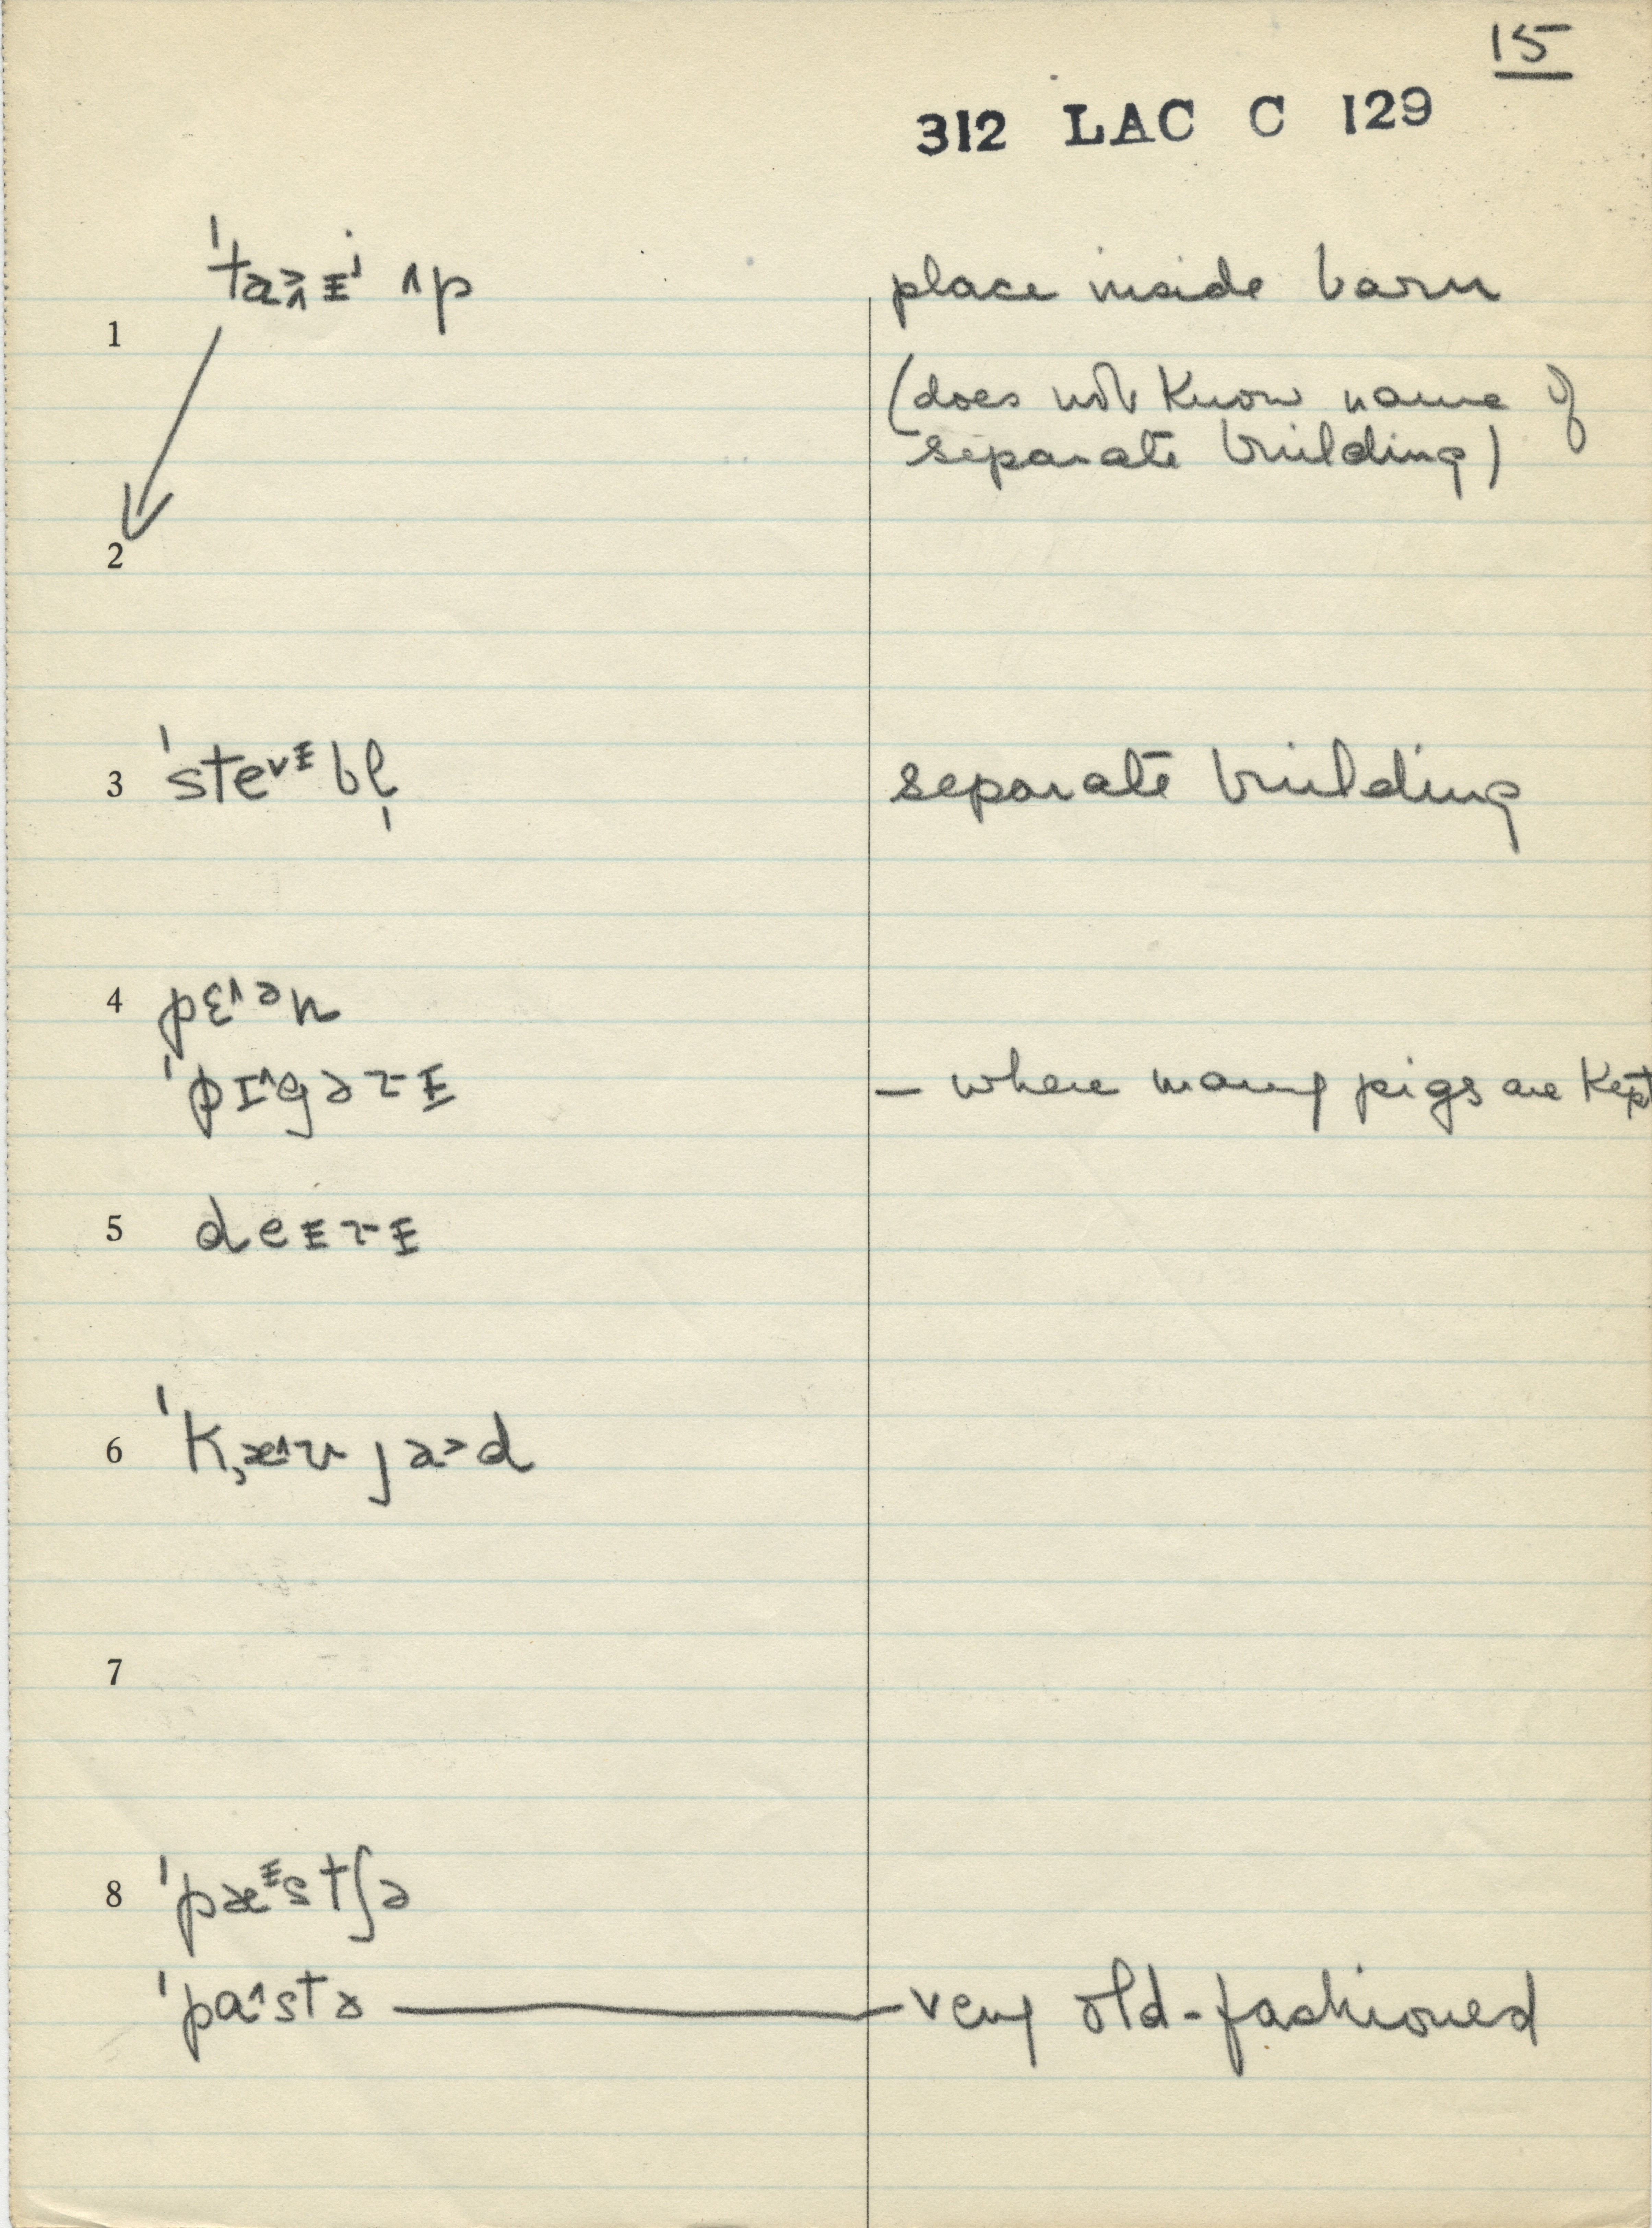 15
312 LAC C 129
1 ˈtaɪ ʌp place inside barn
(does not know name of
separate building)
2
3 ˈsteᵛᵻbl̩ separate building
4 pɛ^ᵊn
ˈpɪ^gərɪ – where many pigs are kept
5 deɪrɪ
6
7
8 ˈpæᵻstʃə
ˈpa^stə — very old-fashioned